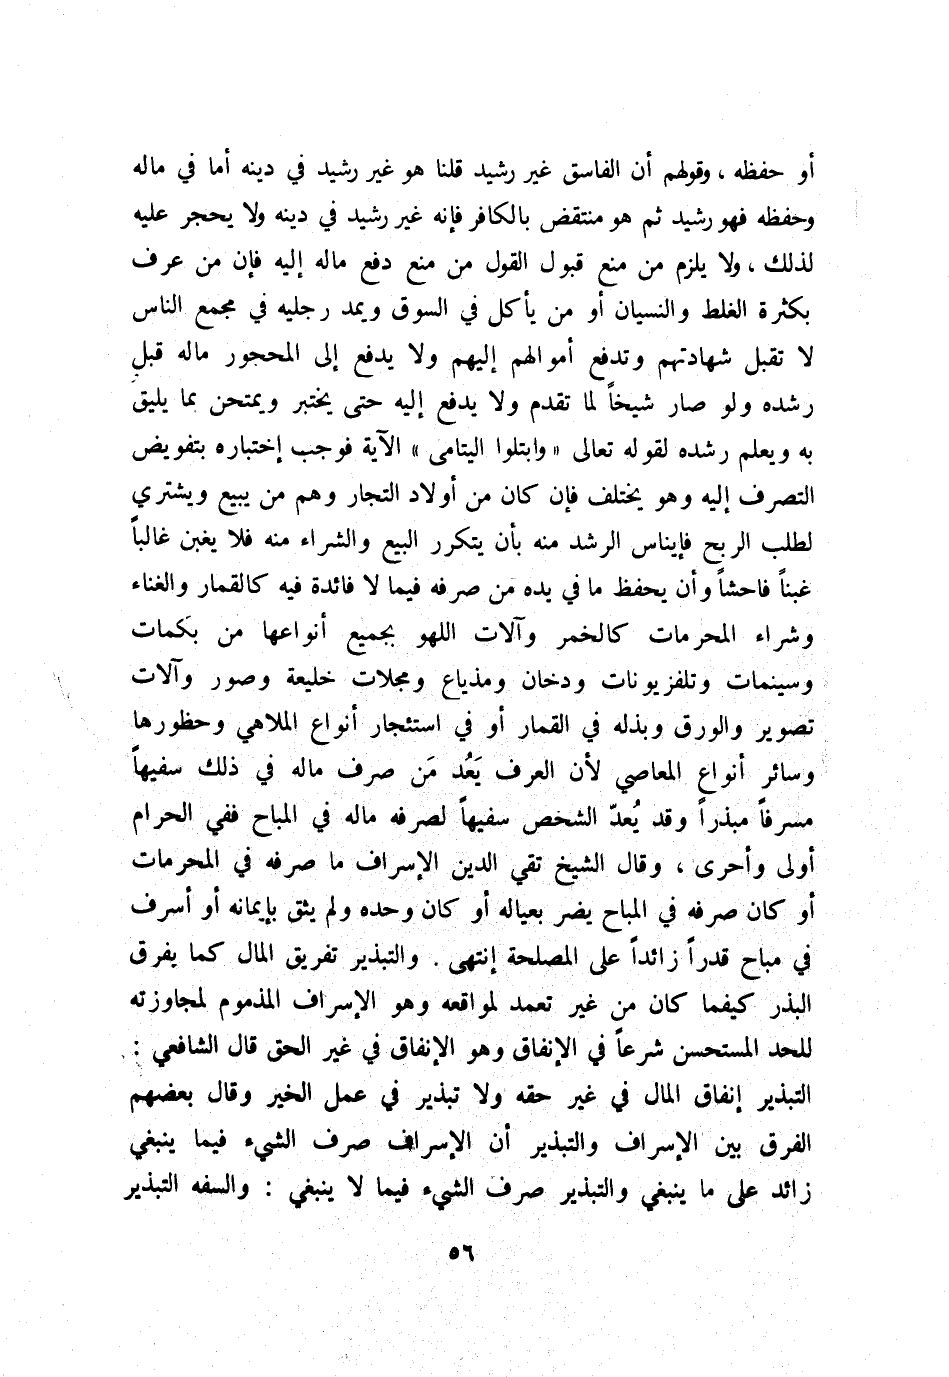 أو حفظه ، وقولهم أن الفاسق غير رشيد قلنا هو غير رشيد في دينه أما في ماله
وحفظه فهو رشيد ثم هو منتقض بالكافر فإنه غير رشيد في دينه ولا يحجر عليه
لذلك ، ولا يلزم من منع قبول القول من منع دفع ماله إليه فإن من عرف
بكثرة الغلط والنسيان أو من يأكل في السوق ويمد رجليه في مجمع الناس
لا تقبل شهادتهم وتدفع أموالهم إليهم ولا يدفع إلى المحجور ماله قبل
رشده ولو صار شيخاً لما تقدم ولا يدفع إليه حتى يختبر ويمتحن بما يليق
به ويعلم رشده لقوله تعالى « وابتلوا اليتامى » الآية فوجب إختباره بتفويض
التصرف إليه وهو يختلف فإن كان من أولاد التجار وهم من يبيع ويشتري
لطلب الربح فإيناس الرشد منه بأن يتكرر البيع والشراء منه فلا يغبن غالباً
غبناً فاحشاً وأن يحفظ ما في يده من صرفه فيما لا فائدة فيه كالقمار والغناء
وشراء المحرمات كالخمر وآلات اللهو بجميع أنواعها من بكمات
وسينمات وتلفزيونات ودخان ومذياع ومجلات خليعة وصور وآلات
تصوير والورق وبذله في القمار أو في استئجار أنواع الملاهي وحظورها
وسائر أنواع المعاصي لأن العرف يَعُد مَن صرف ماله في ذلك سفيهاً
مسرفاً مبذراً وقد يُعدّ الشخص سفيهاً لصرفه ماله في المباح ففي الحرام
أولى وأحرى ، وقال الشيخ تقي الدين الإسراف ما صرفه في المحرمات
أو كان صرفه في المباح يضر بعياله أو كان وحده ولم يثق بإيمانه أو أسرف
في مباح قدراً زائداً على المصلحة إنتهى . والتبذير تفريق المال كما يفرق
البذر كيفما كان من غير تعمد لمواقعه وهو الإسراف المذموم لمجاوزته
للحد المستحسن شرعاً في الإنفاق وهو الإنفاق في غير الحق قال الشافعي :
التبذير إنفاق المال في غير حقه ولا تبذير في عمل الخير وقال بعضهم
الفرق بين الإسراف والتبذير أن الإسراف صرف الشيء فيما ينبغي
زائد على ما ينبغي والتبذير صرف الشيء فيما لا ينبغي : والسفه التبذير
٥٦